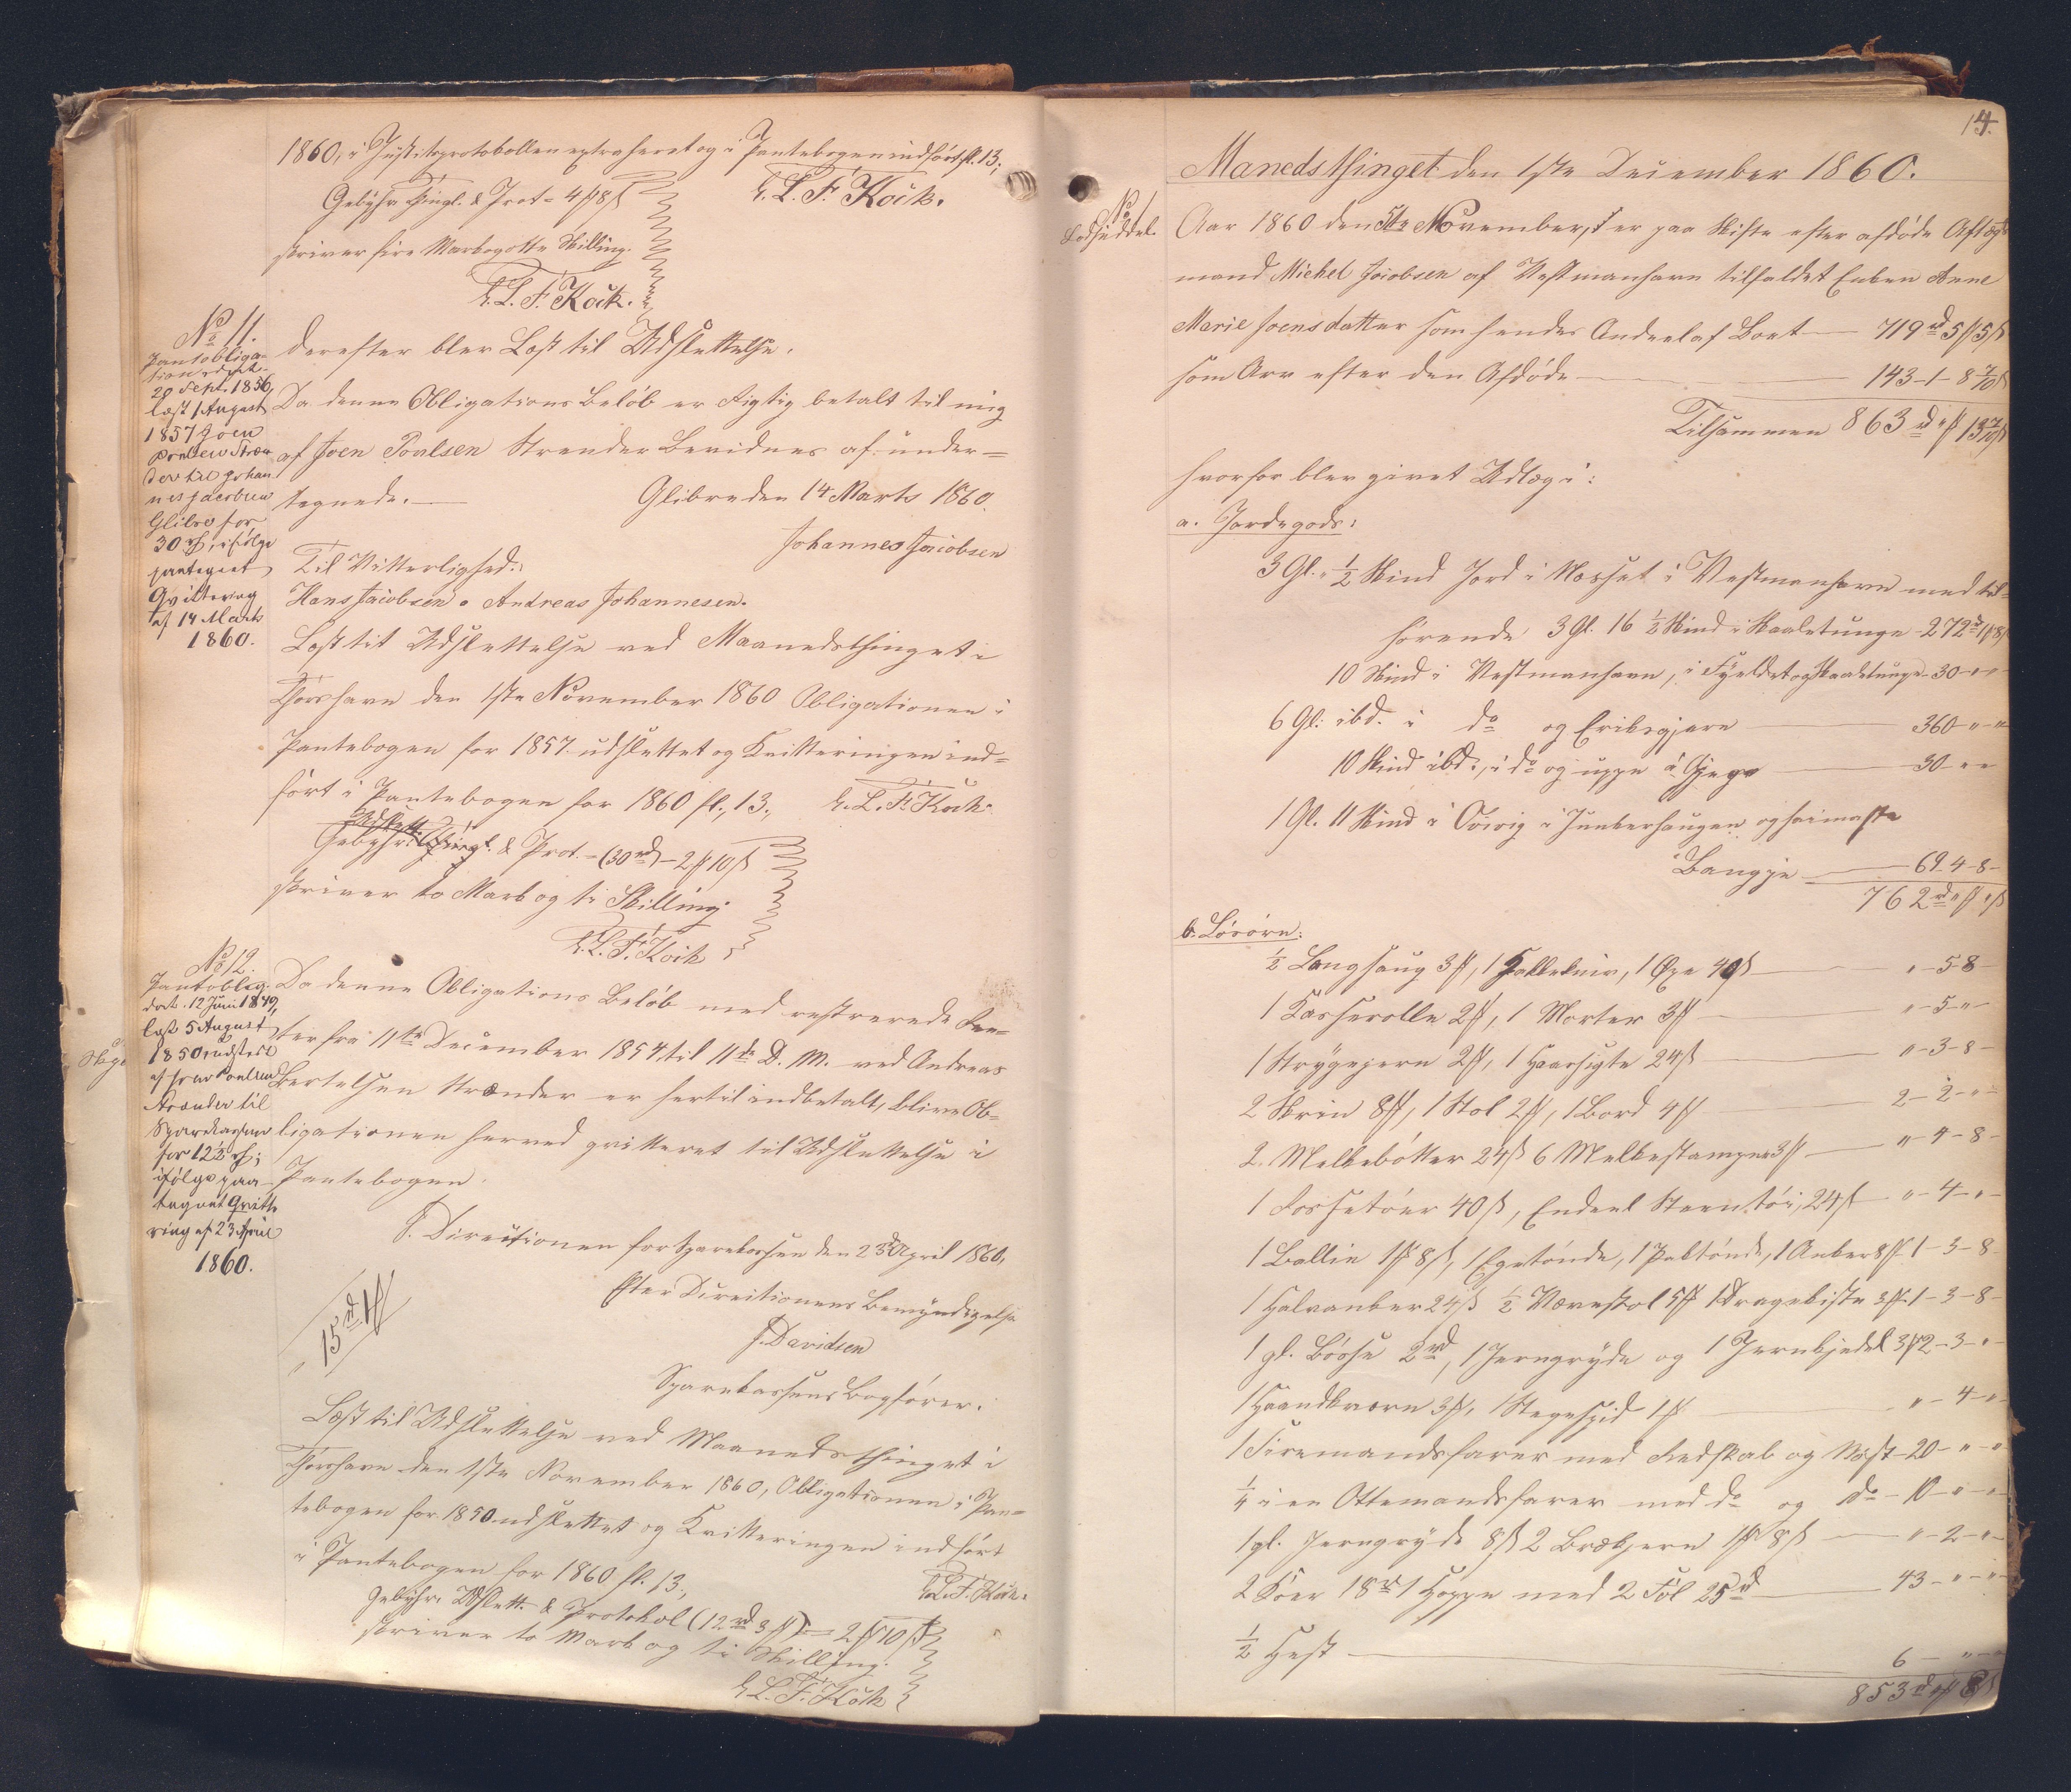 1860, i Justitsprotokollen extraheret og i Pantebogen indført fl. 13.,
H. L. F. Kock.
Gebyhr Thingl. & Prot = 4 ₻ 8 ß
skriver fire Mark og otte Skilling.
H. L. F. Kock.
No 11.
Pantobliga-
tion dat.
29 Sept. 1856,
læst 1 August
1857 Joen
Poulsen Stræn
der til Johan
nes Jacobsen
Glibre for
30 rd, ifølge
paategnet
Qvittering
af 14 Marts
1860.
Derefter blev Læst til Udslettelse.
Da denne Obligations Beløb er rigtig betalt til mig
af Joen Poulsen Strender bevidnes af under=
tegnede. —
Glibre den 14 Marts 1860.
Johannes Jacobsen
Til Vitterlighed:
Hans Jacobsen. Andreas Johannesen.
Læst til Udslettelse ved Maanedsthinget i
Thorshavn den 1ste November 1860 Obligationen i
Pantebogen for 1857 udslettet og Kvitteringen ind=
ført i Pantebogen for 1860 fl. 13.,
H. L. F. Kock.
Udslett.
Gebyhr: Thingl. & Prot. = (30 rd) – 2 ₻ 10 ß
skriver to Mark og ti Skilling
H. L. F. Kock
No 12.
Pantoblig.
dat. 12 Juni 1849,
læst 5 August
1850 udstedt
af Joen Poulsen
Strænder til
Sparekassen
for 12½ rd;
ifølge paa-
tegnet Qvitte
ring af 23 April
1860.
Da denne Obligations Beløb med resterende Ren=
ter fra 11te December 1854 til 11te D. M. ved Andreas
Bertelsen Strænder er hertil indbetalt, blive Ob=
ligationen herved qvitteret til Udslettelse i
Pantebogen.
I Directionen for Sparekassen den 23d April 1860,
Efter Directionens Bemyndigelse
J. Davidsen
Sparekassens Bogfører.
15 rd 1 ₻
Læst til Udslettelse ved Maanedsthinget i
Thorshavn den 1ste November 1860, Obligationen i Pan=
tebogen for 1850 udslettet og Kvitteringen indført
i Pantebogen for 1860 fl. 13.,
H. L. F. Kock.
Gebyhr: Udslett. & Protokol (12 rd 3 ₻) = 2 ₻ 10 ß
skriver to Mark og ti Skilling.
H. L. F. Kock
14.
Manedsthinget den 1ste December 1860.
No 1.
Lodseddel.
Aar 1860 den 5te November, er paa Skifte efter afdøde Aftægts
mand Michel Jacobsen af Vestmanhavn tilfaldet Enken Anne
Marie Joensdatter som hendes Andeel af Boet — 719 rd 5 ₻ 5 ß
som Arv efter den Afdøde — 143 – 1 – 8 7/10 ß
Tilsammen 863 rd " ₻ 13 7/10 ß
hvorfor blev givet Udlæg i:
a. Jordegods:
3 Gl. " ½ Skind Jord i Nesset i Vestmanhavn med til=
hørende 3 Gl. 16 ½ Skind i Skaaletunge – 272 rd 1 ₻ 8 ß
10 Skind i Vestmanhavn, i Fyeldet og Skaaletunge – 30 – " "
6 Gl: ibd. i do og Eriksgjare — 360 " – "
10 Skind ibd:, i do og uppe á Gjegge — 30 – " "
1 Gl. 11 Skind i Qvivig i Junkerhaugen og heimaste
Bangje — 69 – 4 – 8 –
762 rd " ₻ " ß
b. Løsøre:
½ Langhaug 3 ₻, 1 Hakkekniv, 1 Øxe 40 ß — " – 5 – 8 –
1 Kasserolle 2 ₻, 1 Morter 3 ₻ — " – 5 – " –
1 Strygejern 2 ₻, 1 Haarsigte 24 ß — " – 3 – 8 –
2 Skrin 8 ₻, 1 Stol 2 ₻, 1 Bord 4 ₻ — 2 – 2 – " –
2. Melkebøtter 24 ß 6 Melkestamper 3 ₻ — " – 4 – 8 –
1 40 ß, Endeel Steentøi, 24 ß — " – 4 – " –
1 Ballie 1 ₻ 8 ß, 1 Egetønde, 1 Paktønde, 1 Anker 8 ₻ 1 – 3 – 8
1 Halvanker 24 ß ½ Væveskol 5 ₻ 1 Dragekiste 3 ₻ – 1 – 3 – 8 –
1 gl. Bøsse 2 rd, 1 Jerngryde og 1 Jernkjedel 3 ₻ 2 – 3 – "
1 Haandkværn 3 ₻, 1 Stegespid 1 ₻ — " – 4 – "
1 Firemandsfarer med Redskab og Nøst – 20 – " – "
¼ i en Ottemandsfarer med do og do – 10 – " – "
1 gl. Jerngryde 8 ß 2 Brækjern 1 ₻ 8 ß — " – 2 – " –
2 Køer 18 rd 1 Hoppe med 2 Føl 25 rd — 43 – " – "
½ Hest — 6 – " – "
853 rd " ₻ 8 ß